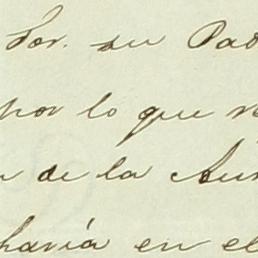 Por. su Pad
por lo que n
de la Aun
havía en el